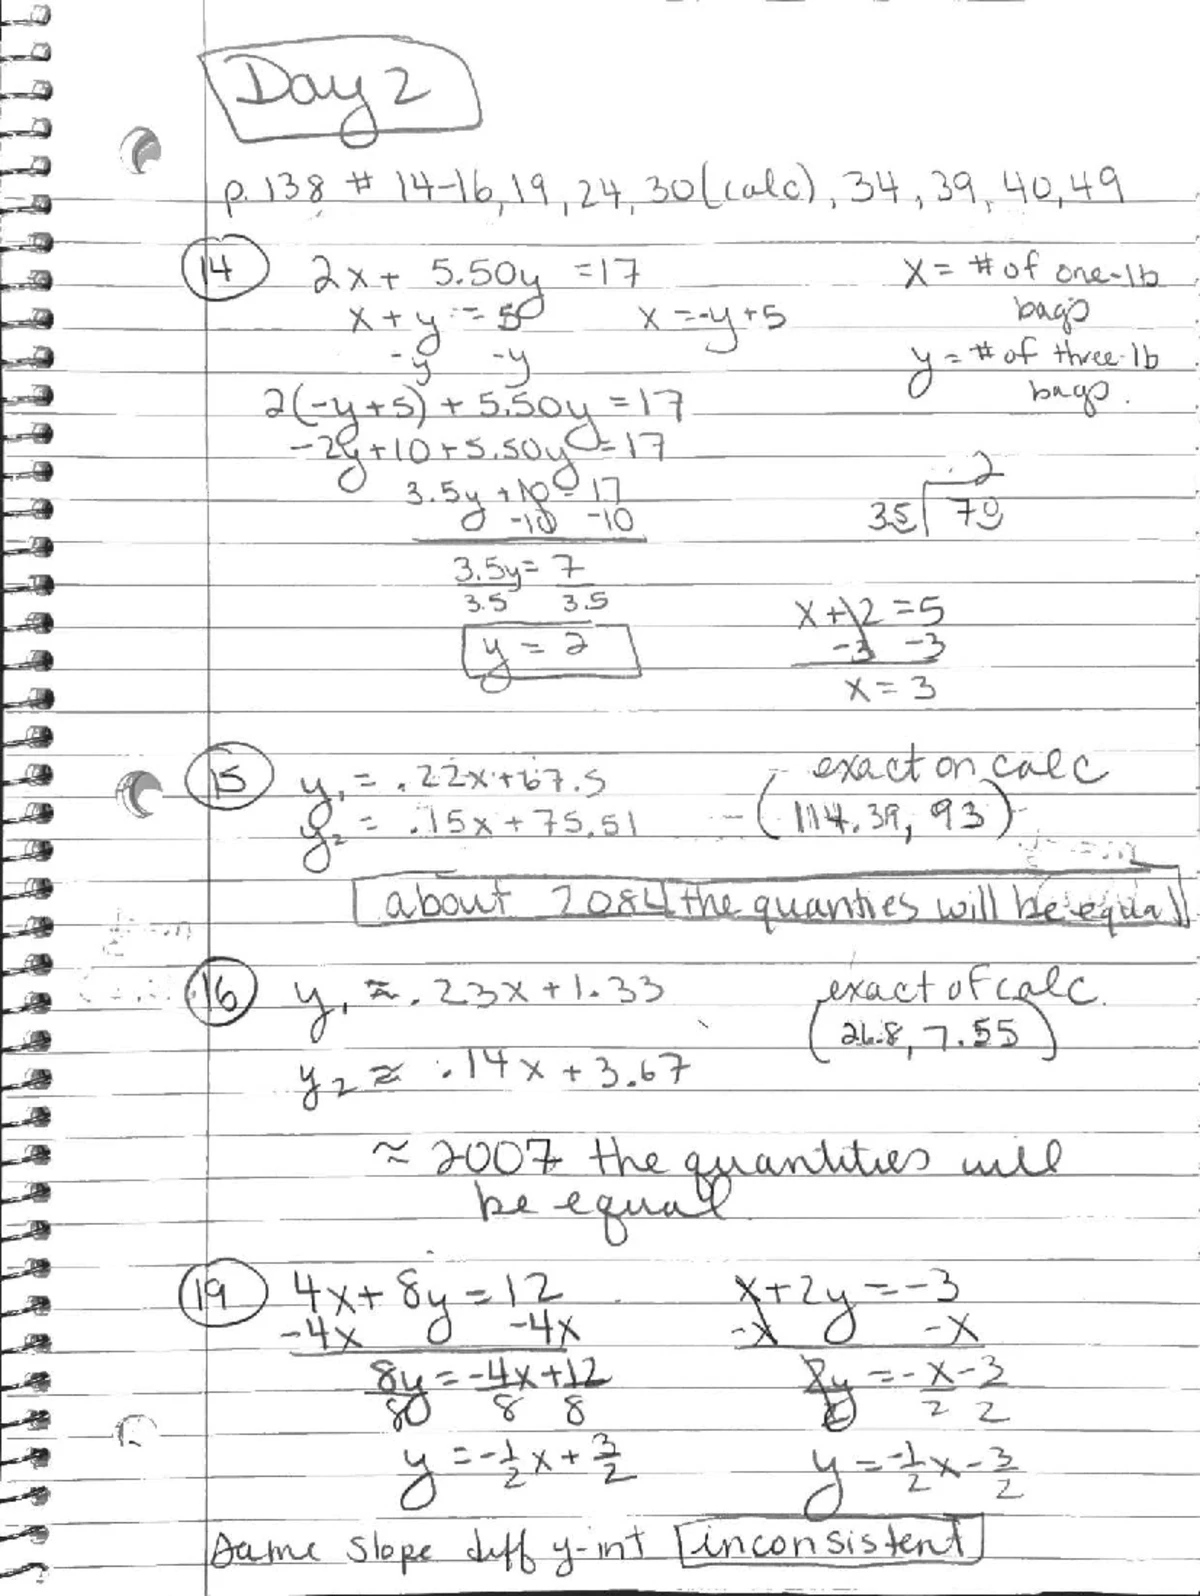 Day 2
p. 138 # 14-16, 19, 24, 30 (calc), 34, 39, 40, 49
14 2x + 5.50y = 17 x = # of one-lb bags
x + y = 5 x = -y + 5
-y -y y = # of three-lb bags.
2(-y+5) + 5.50y = 17
-2y + 10 + 5.50y = 17 .2
3.5y + 10 = 17 35 70
-10 -10
3.5y = 7
3.5 3.5 x + 2 = 5
y = 2 -3 -3
x = 3
15 y₁ = .22x + 67.5 exact on calc
y₂ = .15x + 75.51 (114.39, 93)
about 2084 the quanties will be equal
16 y₁ ≈ .23x + 1.33 exact of calc.
(26.8, 7.55)
y₂ ≈ .14x + 3.67
≈ 2007 the quantities will
be equal
19 4x + 8y = 12 x + 2y = -3
-4x -4x -x -x
8y = -4x + 12 2y = -x - 3
8 8 8 2 2 2
y = -1/2x + 3/2 y = -1/2x - 3/2
Same slope diff y-int inconsistent